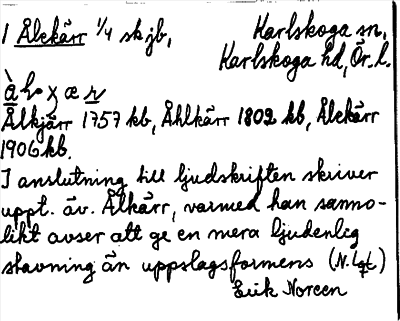 1 Ålekärr 1/4 sk jb, Karlskoga sn,
Karlskoga hd, Ör. l.
Ålkjärr 1757 kb, Åhlkärr 1802 kb, Ålekärr
1906 kb.
I anslutning till ljudskriften skriver
uppt. äv. Ålkärr, varmed han sanno-
likt avser att ge en mera ljudenlig
stavning än uppslagsformens (N. Lgt.)
Erik Noreen